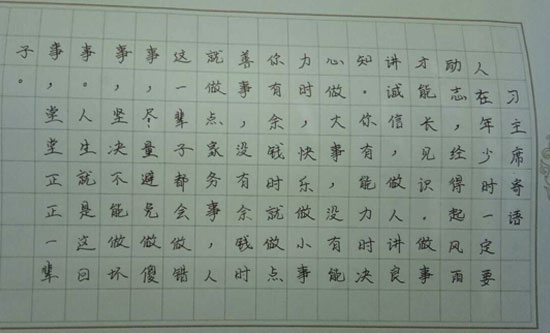 习主席寄语
人在年少时一定要
励志,经得起风雨
才能长见识.做事
讲诚信,做人讲良
知.你有能力时决
心做大事,没有能
力时,快乐做小事
你有余钱时就做点
善事,没有余钱时
就做点家务事,人
这一辈子都会做错
事,尽量避免做傻
事,坚决不能做坏
事。人生就是这回
事,堂堂正正一辈
子。